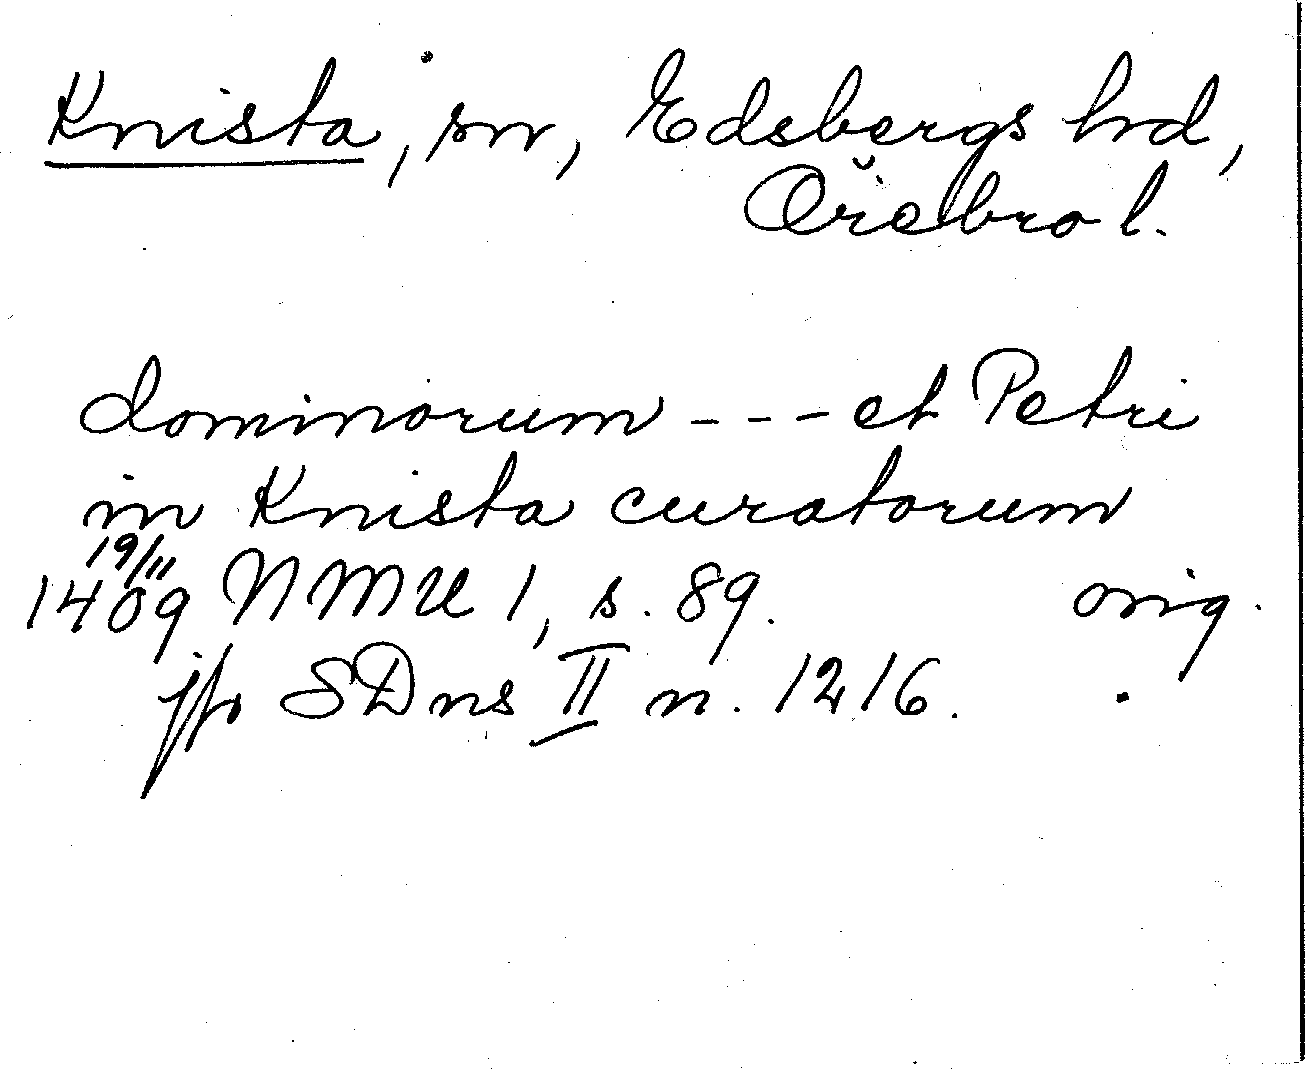 Knista, sn, Edsbergs hrd,
Örebro l.
dominorum - - - et Petri
in Knista curatorum
19/11
1409 NMU 1, s. 89. orig.
jfr SDns II n. 1216.